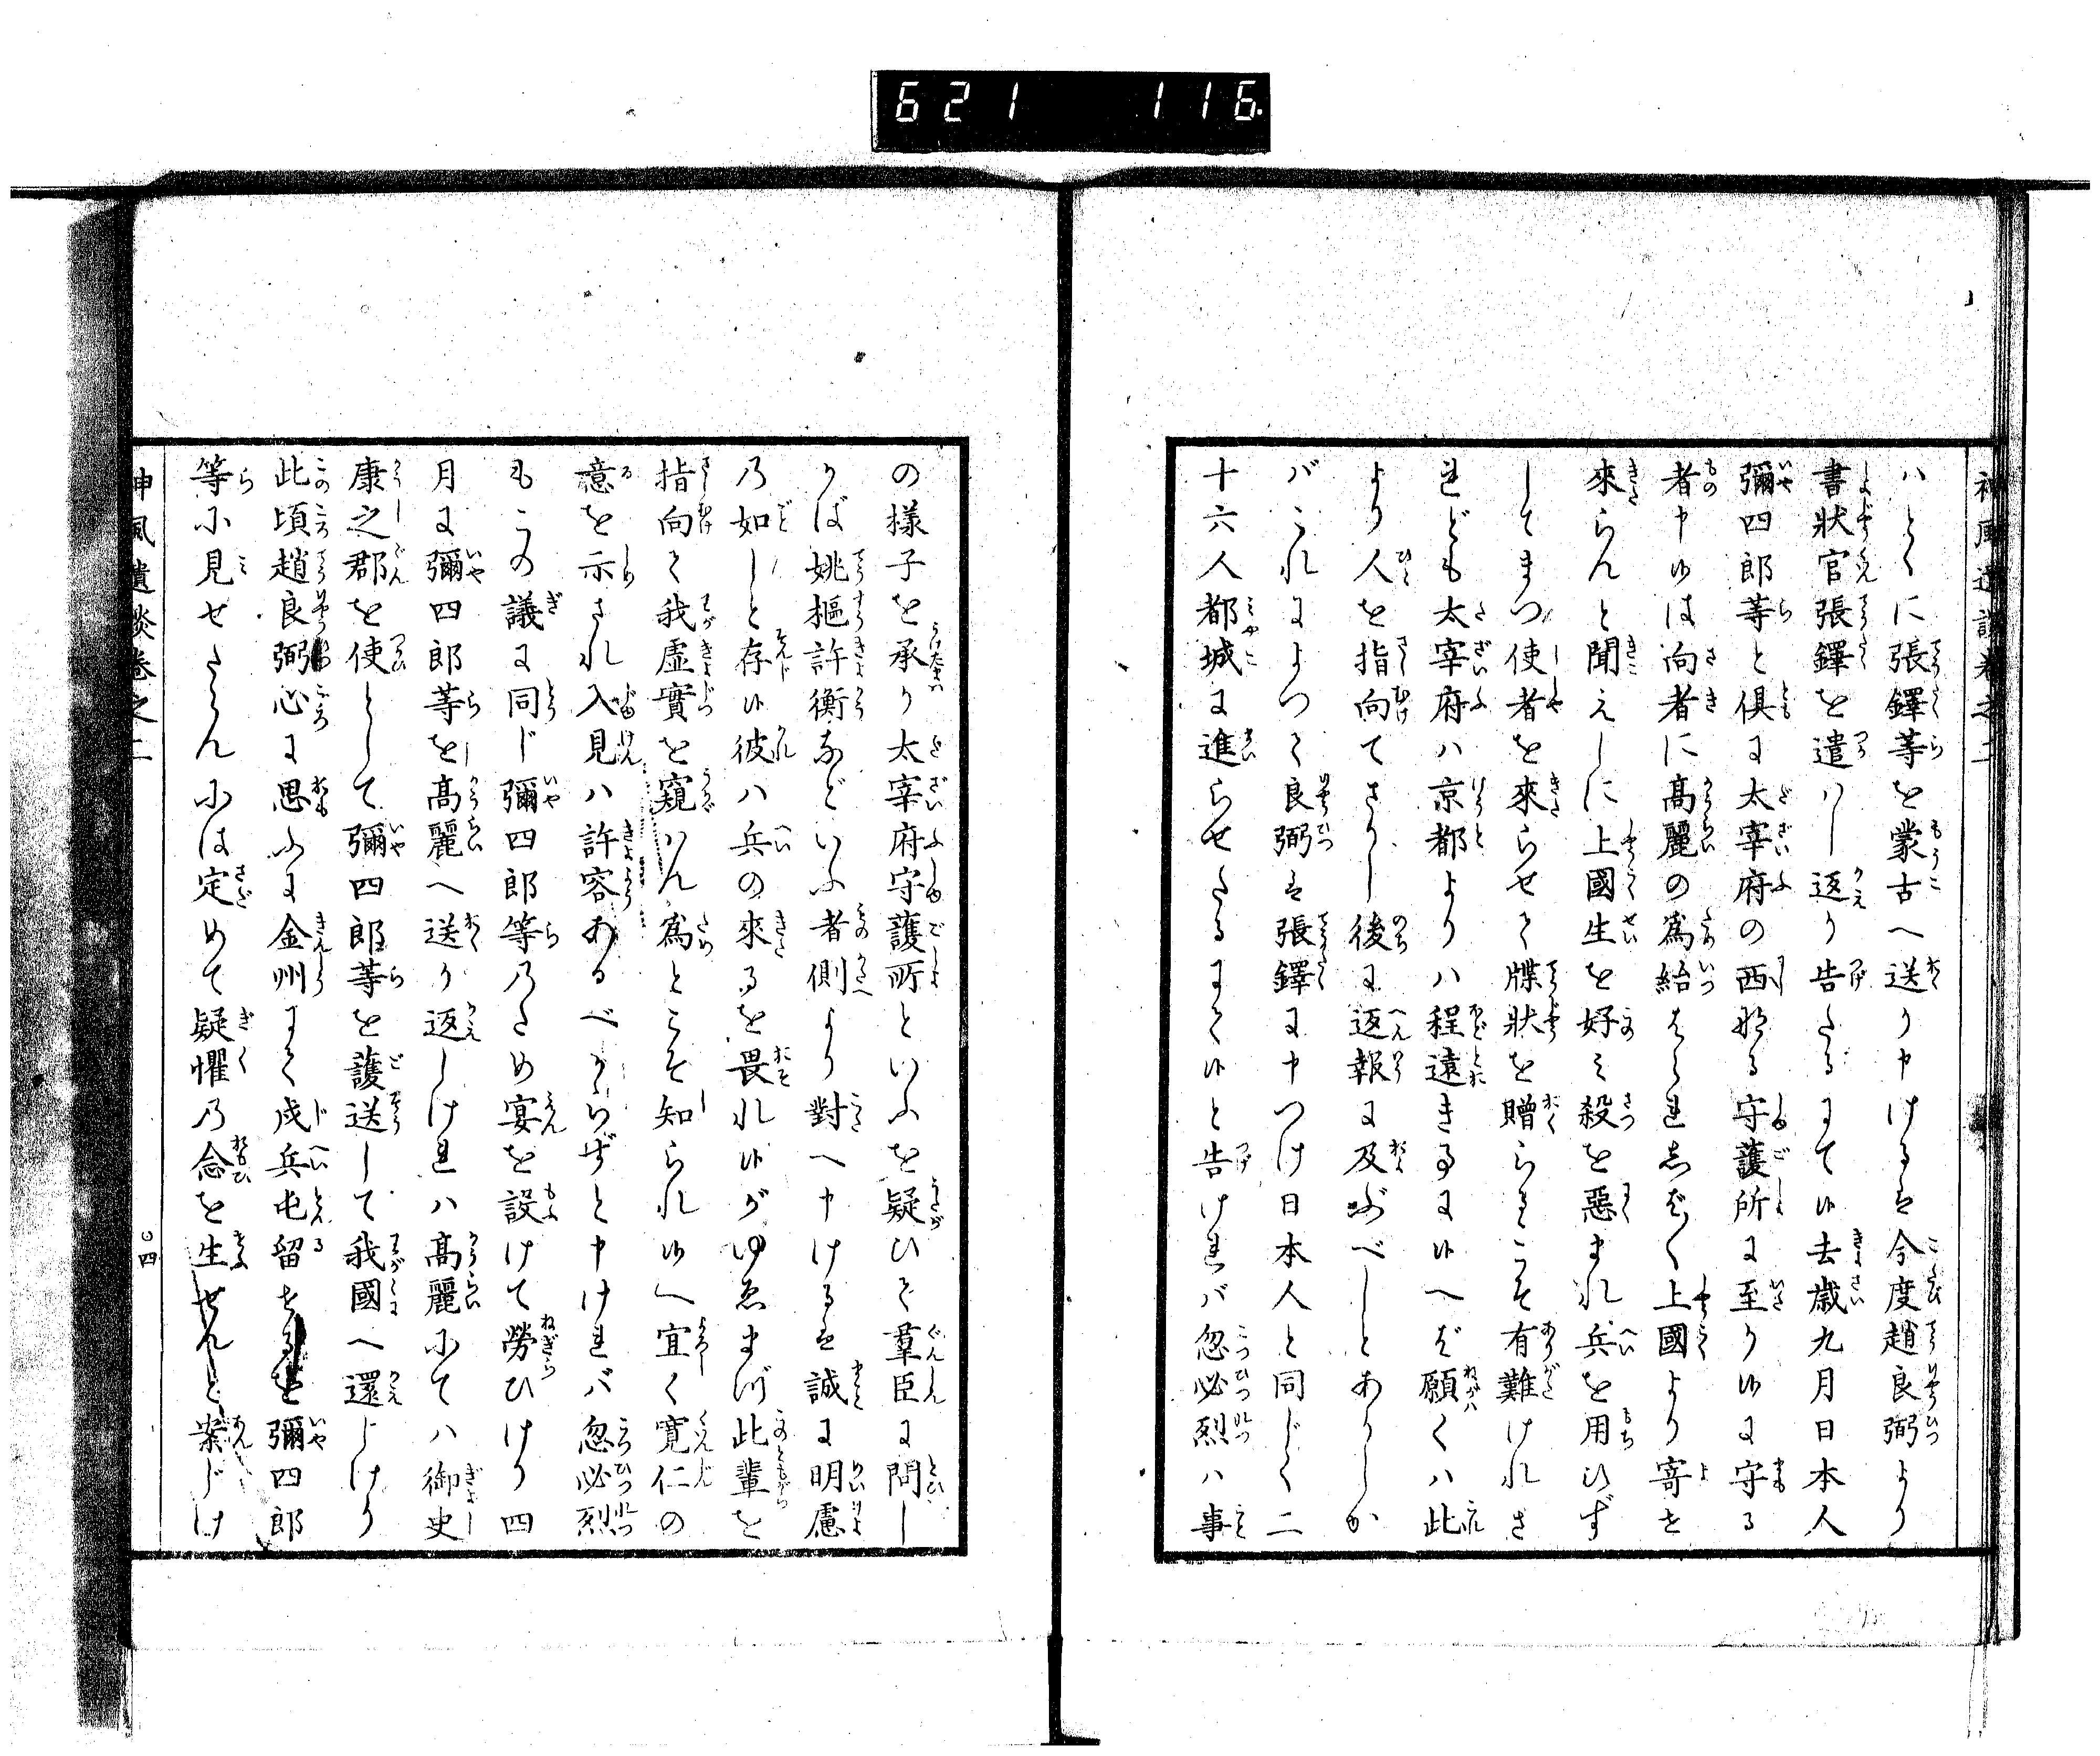 621 116
神風遺談卷之二
ハとくに張鐸等を蒙古へ送り申けるは今度趙良弼より
書狀官張鐸を遣ハし返り告たるにて候去歳九月日本人
彌四郎等と俱に太宰府の西なる守護所に至り候に守る
者申候は向者に髙麗の爲紿はられしばしば上國より寄せ
來らんと聞えしに上國生を好ミ殺を惡まれ兵を用ひず
してまづ使者を來らせて牒狀を贈らるこそ有難けれさ
れども太宰府ハ京都よりハ程遠きゆゑに候へば願くハ此
より人を指向てさりし後に返報に及ぶべしとありしか
バこれによつて良弼は張鐸に申つけ日本人と同じく二
十六人都城に進らせたるにて候と告けれバ忽必烈ハ事
の様子を承り太宰府守護所といふを疑ひて羣臣に問し
かば姚樞許衡などいふ者側より對へ申けるは誠に明慮
の如しと存候彼ハ兵の來るを畏れ候がゆゑまづ此輩を
指向て我虛實を窺はん爲とこそ知られ候へ宜く寛仁の
意を示され入見ハ許容あるべからずと申けれバ忽必烈
もこの議に同じ彌四郎等のため宴を設けて勞ひけり四
月に彌四郎等を髙麗へ送り返しけれハ髙麗にてハ御史
康之郡を使として彌四郎等を護送して我國へ還しけり
此頃趙良弼心に思ふに金州にて戍兵屯留せるを彌四郎
等に見せたらんには定めて疑懼の念を生せんと案じけ
神風遺談卷之二
四